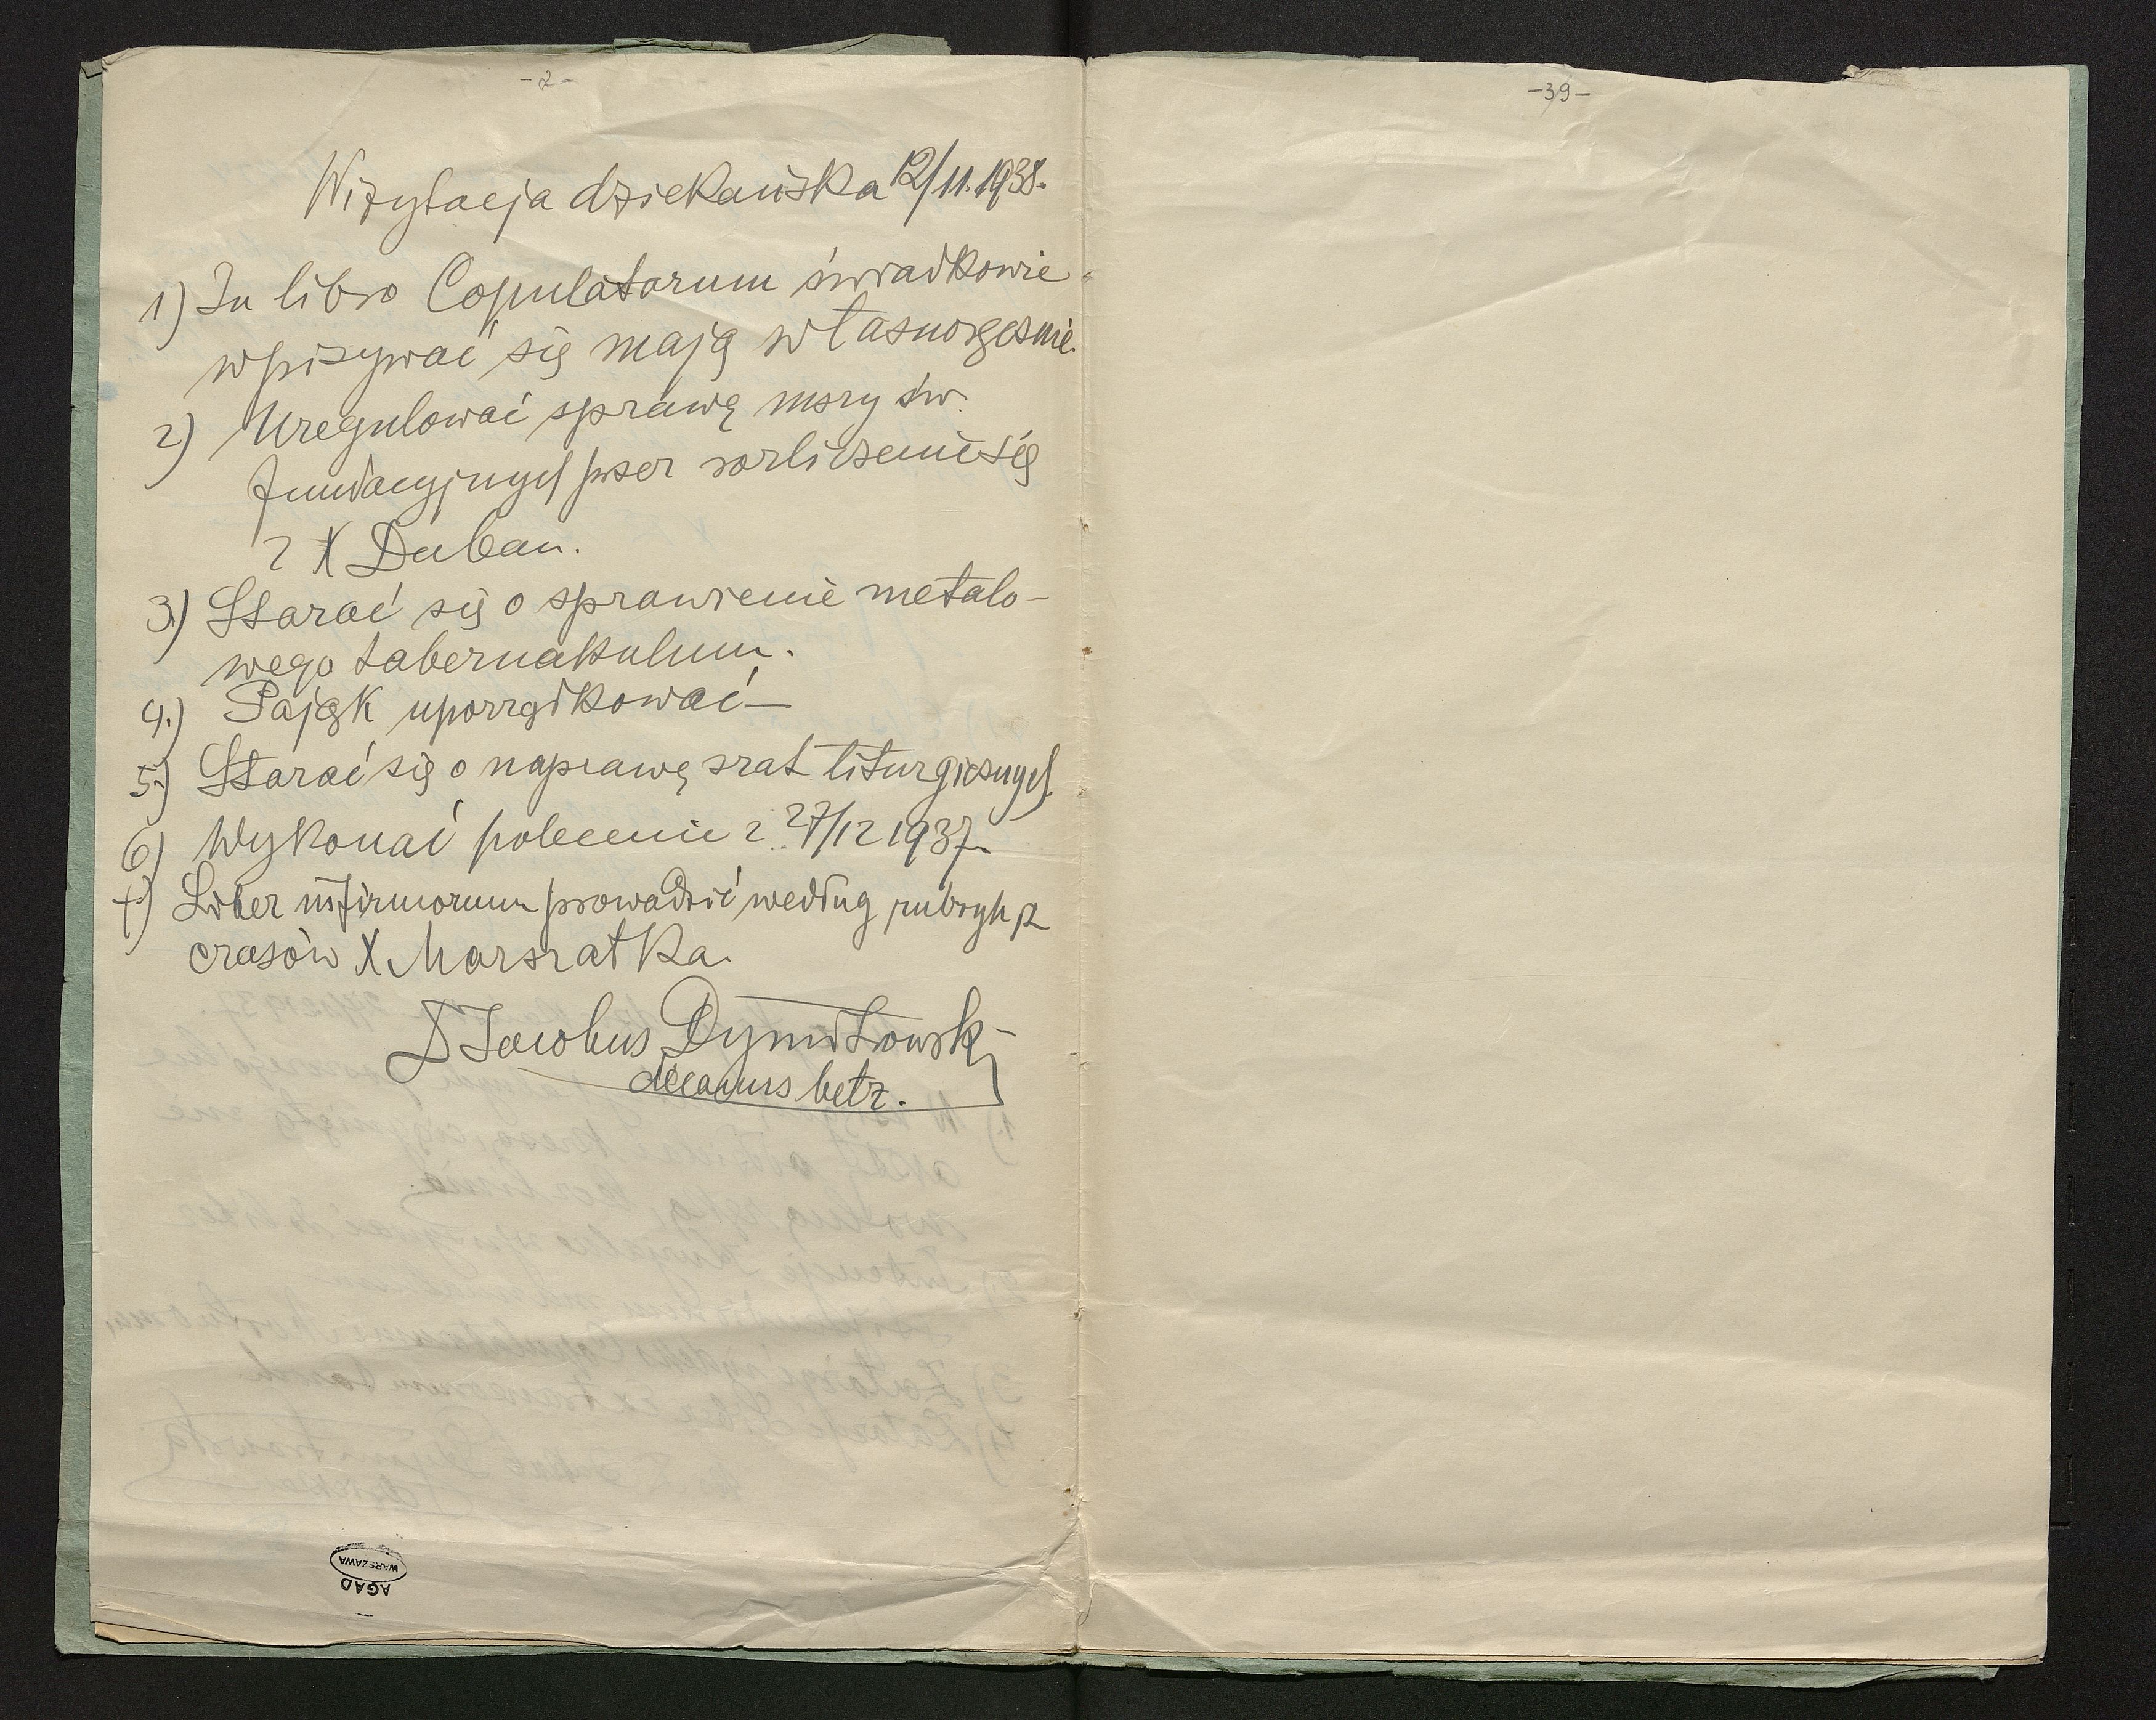 -2-
Wizytacja dziekańska 12/11.1938.
1) In libro Copulatorum świadkowie
wpisywać się mają własnoręcznie.
2) Uregulować sprawę mszy św.
fundacyjnych przez rozliczenie się
z X Duban.
3) Starać się o sprawienie metalo-
wego tabernakulum.
4.) Pająk uporządkować—
5.) Starać się o naprawę szat liturgicznych.
6) Wykonać polecenie z 27/12 1937.
7) Liber infirmorum prowadzić według rubryk z
czasów X Marszałka.
D Jacobus Dymitrowski
decanus bełz.
AGAD
WARSZAWA
-39-